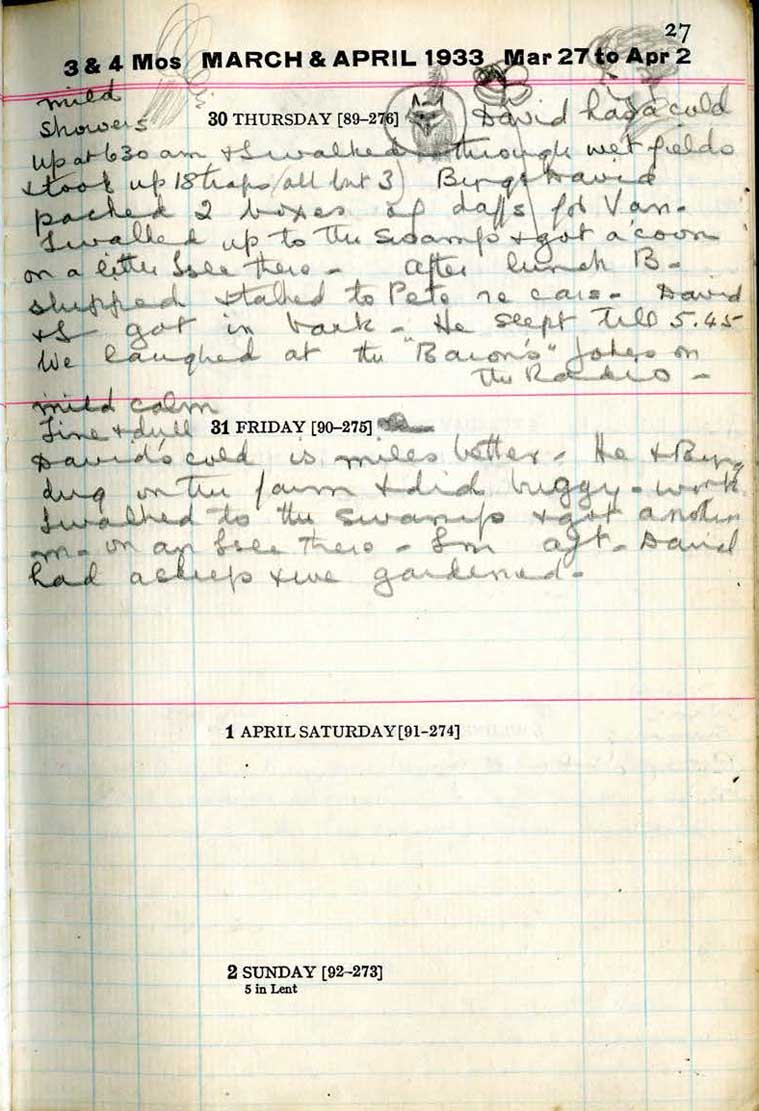 27
3 & 4 Mos MARCH & APRIL 1933 Mar 27 to Apr 2
mild
Showers 30 THURSDAY [89-276] David has a cold
up at 630 am & I walked through wet fields
& took up 18 traps (all but 3) Bung & David
packed 2 boxes of daffs for Van.
I walked up to the swamp & got a coon
on a little I see there - After lunch B-
shipped & talked to Pete re cars - David
& I got in bark - He slept till 5.45
We laughed at the "Baron's" Jokes on
the Radio -
mild calm
Fine & dull 31 FRIDAY [90-275]
David's cold is miles better - He & Bung
dug on the farm & did buggy-work
I walked to the swamp & got another
on an there - In aft. David
had a sleep & we gardened -
1 APRIL SATURDAY [91-274]
2 SUNDAY [92-273]
5 in Lent